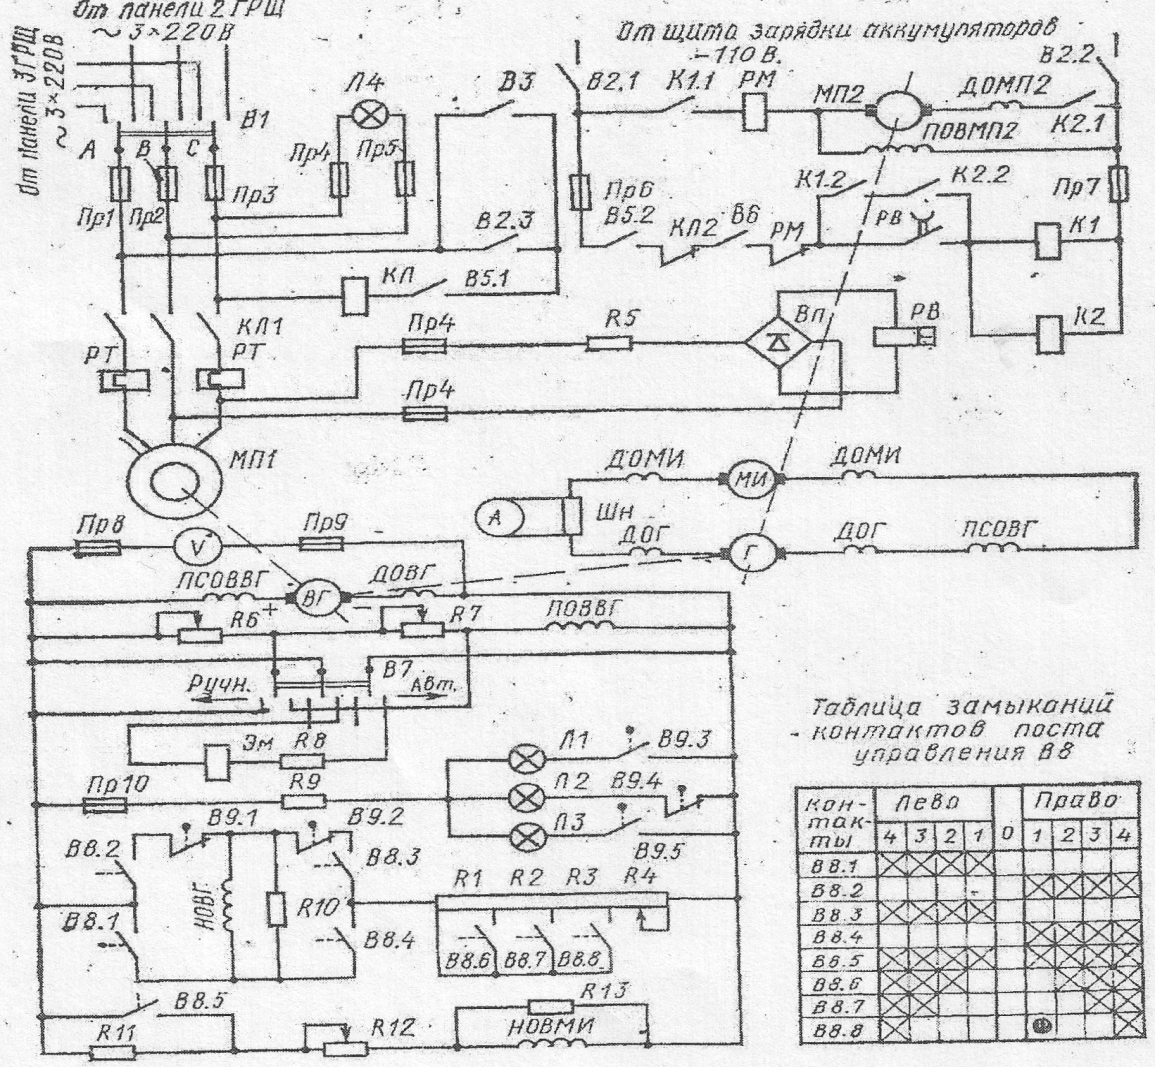 От панели 2 ГРЩ
~ 3×220В
От панели 3ГРЩ
~ 3×220В
От щита зарядки аккумуляторов
-110 В.
А В С В1
Пр1 Пр2 Пр3
Л4
Пр4 Пр5
В3
В2.3
КЛ В5.1
В2.1 К1.1 РМ МП2 ДОМП2 В2.2
К2.1
ПОВМП2
Пр6 К1.2 К2.2 Пр7
В5.2 КЛ2 В6 РМ РВ К1
К2
КЛ1
РТ РТ
Пр4 R5 Вп РВ
Пр4
МП1
ДОМИ МИ ДОМИ
А Шн
ДОГ Г ДОГ ПСОВГ
Пр8 V Пр9
ПСОВВГ ВГ ДОВГ
+ −
R6 R7 ПОВВГ
В7
Ручн. Авт.
Эм R8
Пр10 R9
Л1 В9.3
Л2 В9.4
Л3 В9.5
В9.1 В9.2
В8.2 В8.3
НОВГ R10
В8.1 В8.4
R1 R2 R3 R4
В8.6 В8.7 В8.8
В8.5
R11 R12 R13
НОВМИ
Таблица замыканий
контактов поста
управления В8
кон-
так-
ты
Лево 0 Право
4 3 2 1 1 2 3 4
В8.1
В8.2
В8.3
В8.4
В8.5
В8.6
В8.7
В8.8